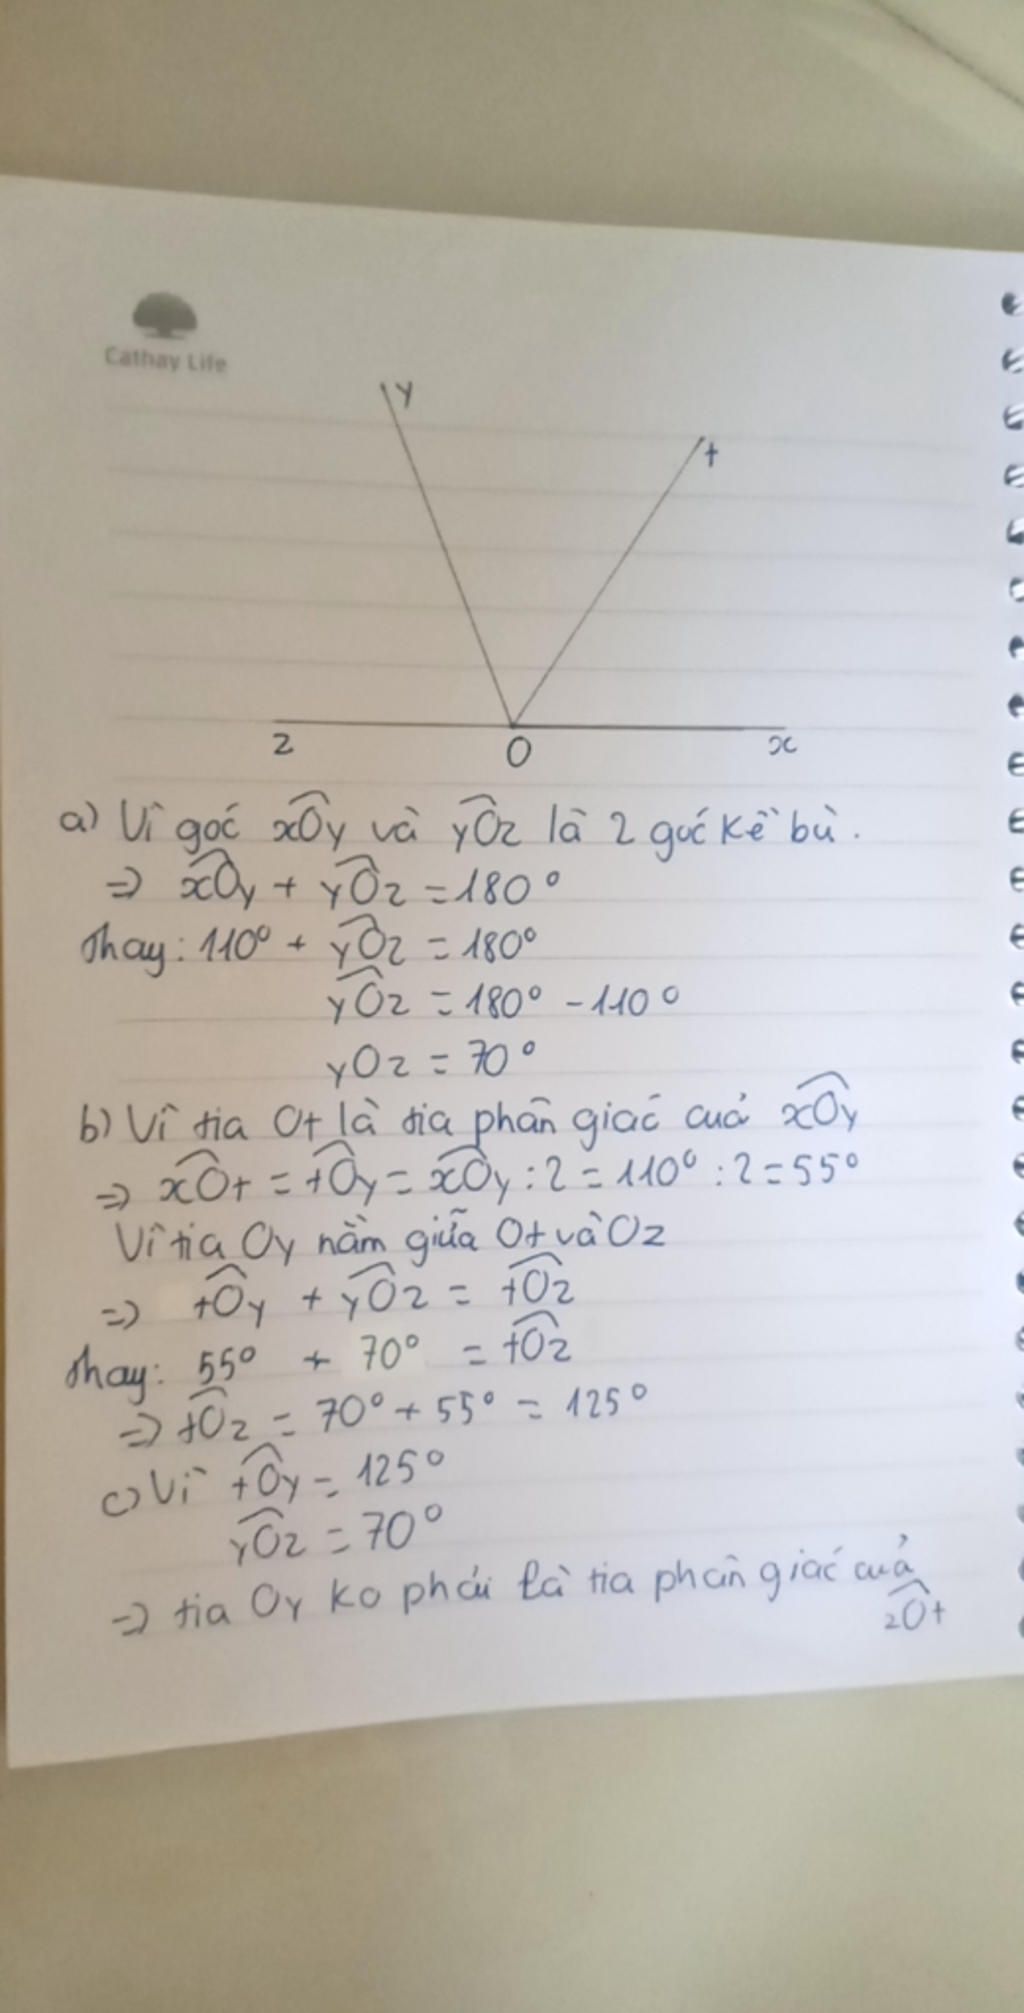 Cathay Life
y
t
z
O
x
a) Vì góc xÔy và yÔz là 2 góc kề bù.
=> xÔy + yÔz = 180°
Thay: 110° + yÔz = 180°
yÔz = 180° - 110°
yOz = 70°
b) Vì tia Ot là tia phân giác của xÔy
=> xÔt = tÔy = xÔy : 2 = 110° : 2 = 55°
Vì tia Oy nằm giữa Ot và Oz
=> tÔy + yÔz = tÔz
Thay: 55° + 70° = tÔz
=> tÔz = 70° + 55° = 125°
c) Vì tÔy = 125°
yÔz = 70°
=> tia Oy ko phải là tia phân giác của
zÔt